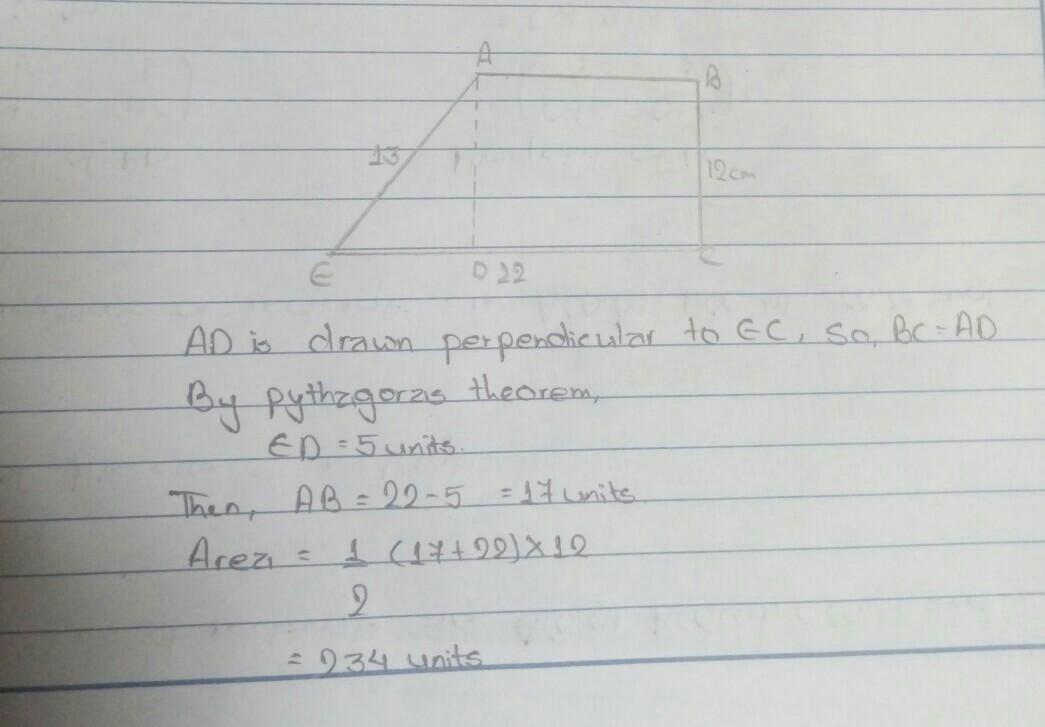 A
B
13
12cm
E
D 22
C
AD is drawn perpendicular to EC, So, BC = AD
By pythagoras theorem,
ED = 5 units.
Then, AB = 22 - 5 = 17 units.
Area = 1/2 (17+22) × 12
= 234 units